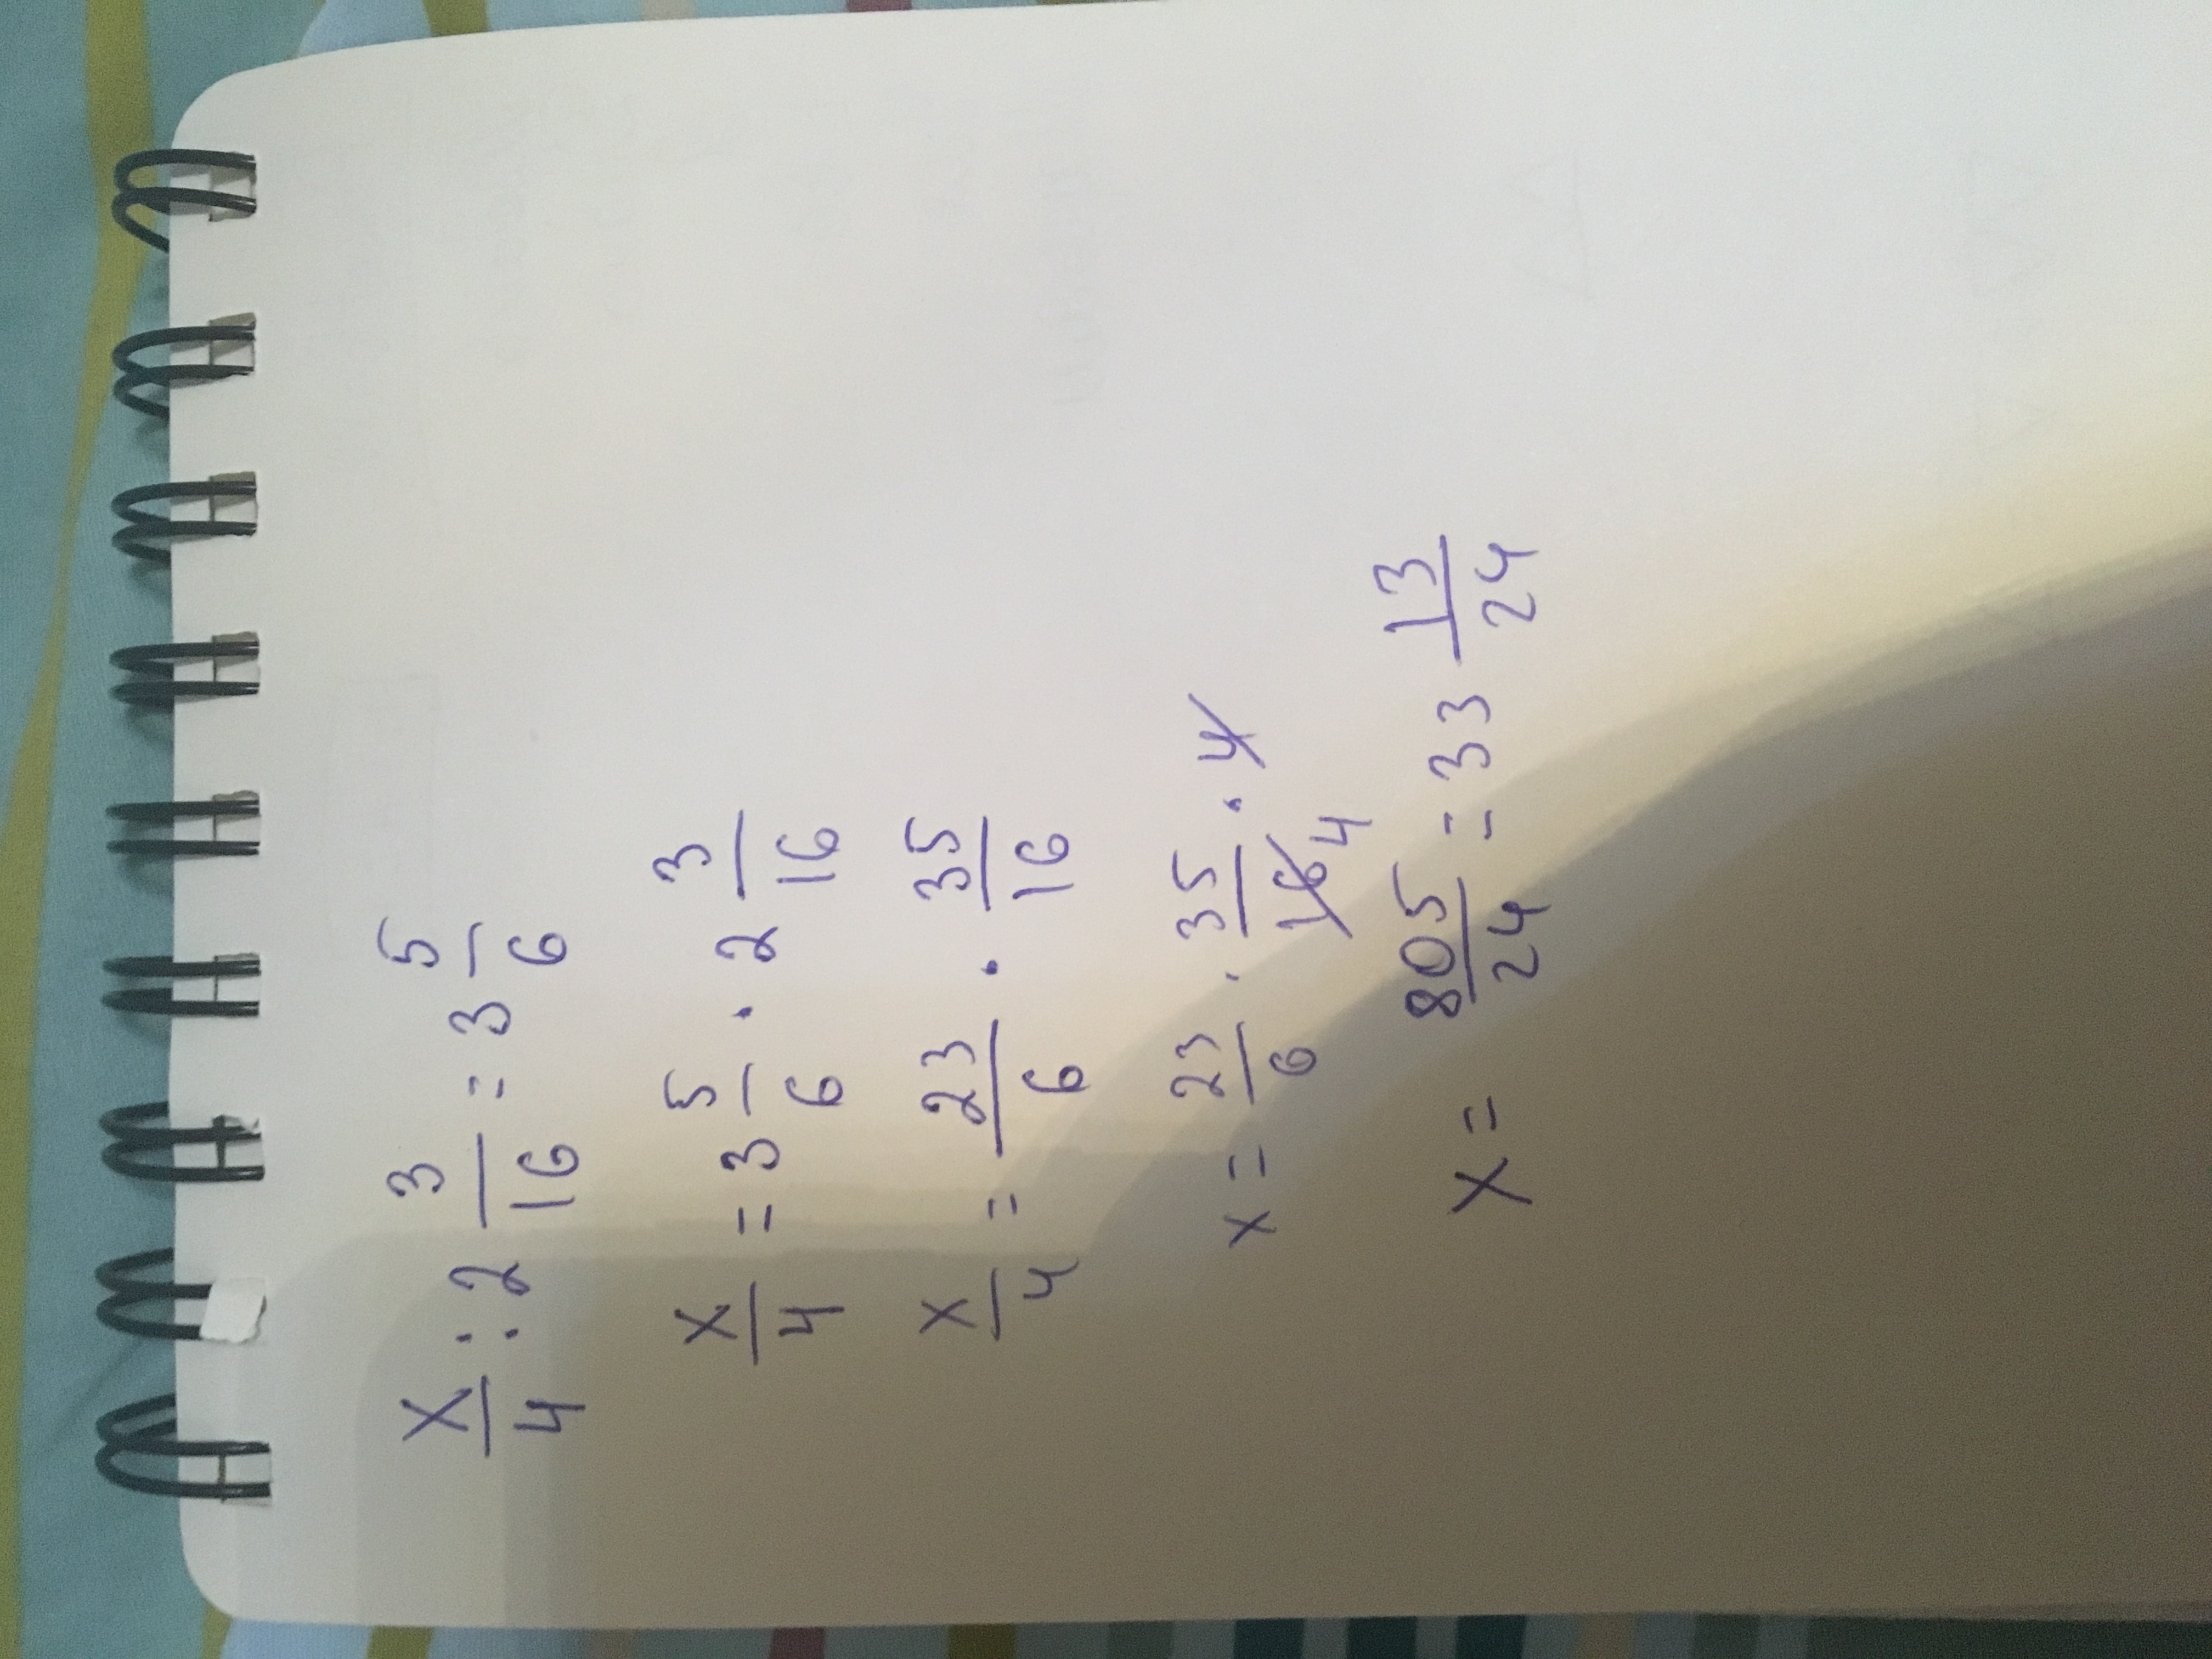 x/4 : 2 3/16 = 3 5/6
x/4 = 3 5/6 · 2 3/16
x/4 = 23/6 · 35/16
x = 23/6 · 35/16 4 · 4
x = 805/24 = 33 13/24